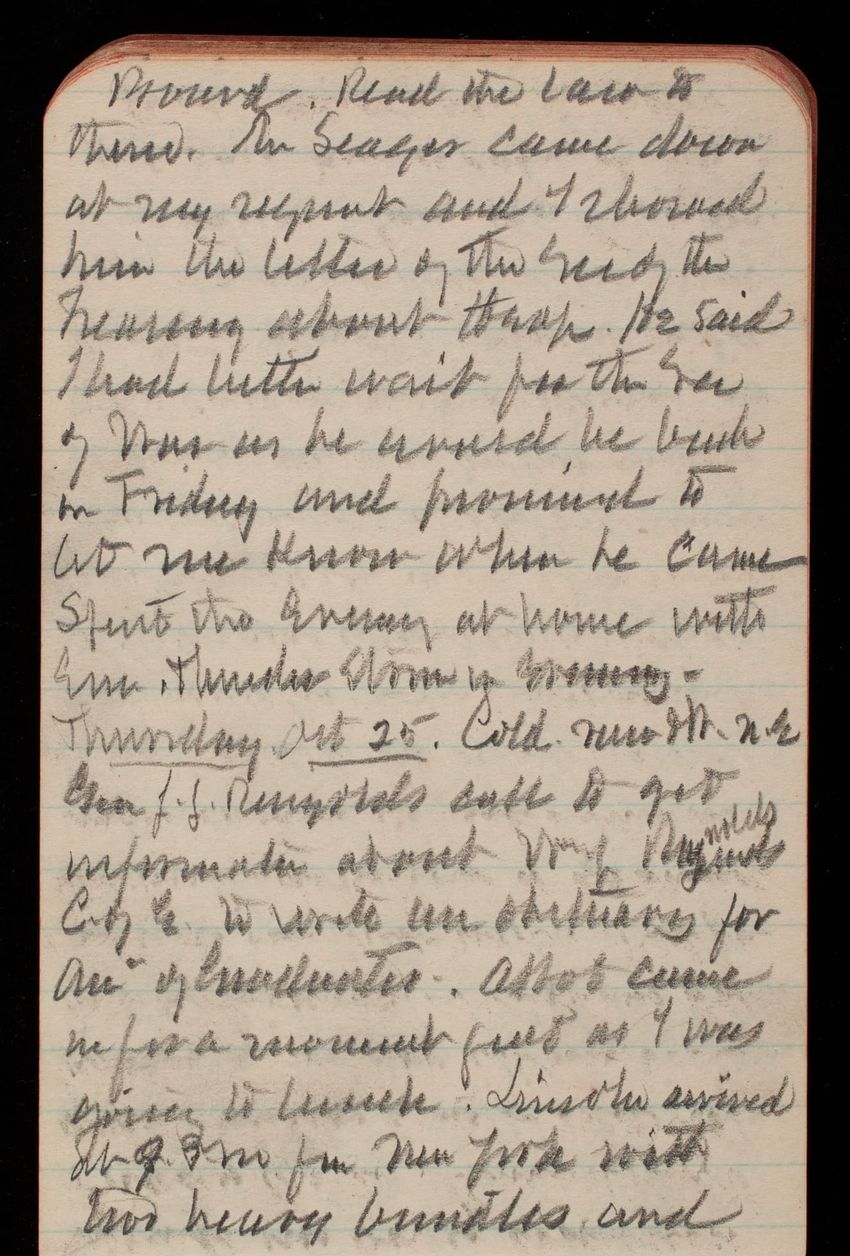 Board. Read the law to
them. Mr Seager came down
at my request and I showed
him the letter of the Sec of the
Treasury about Harp. He said
I had better wait for the Sec
of War as he would be back
on Friday and promised to
let me know when he came
Spent the Evening at home with
Em. Thunder Storm in Evening -
Thursday Oct 25. Cold. raw N.E
Gen J.J. Reynolds call to get
information about Wm F Reynolds
C. of E. to write an obituary for
Ass of Graduates. Abbot came
in for a moment just as I was
going to lunch. Lincoln arrived
at 9.30 from New York with
two heavy bundles and